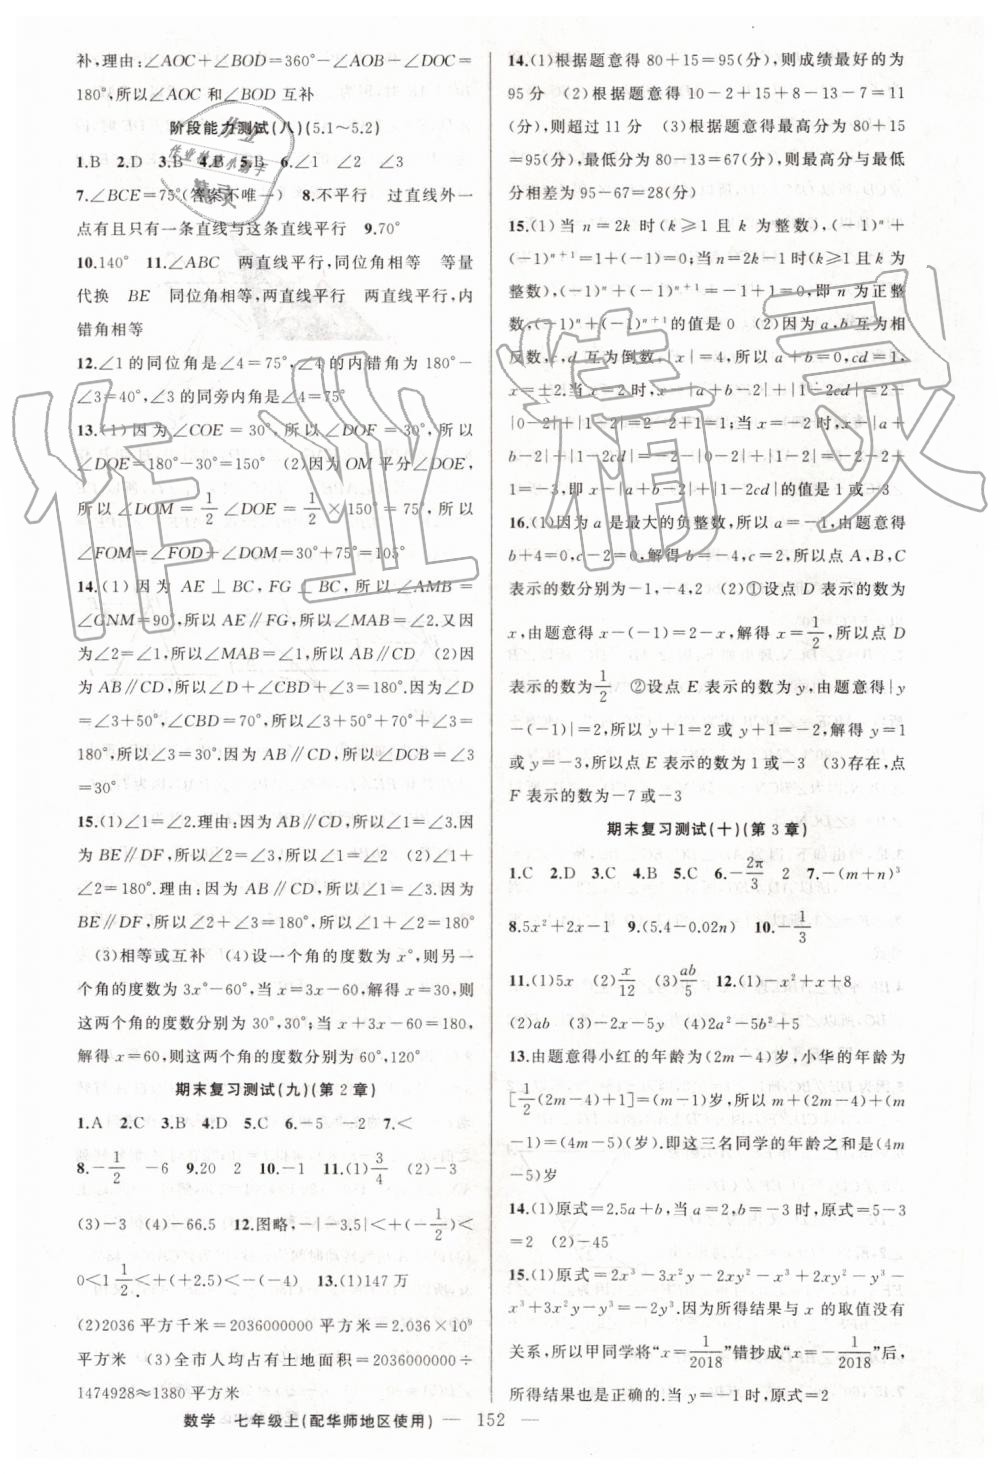 补,理由:∠AOC+∠BOD=360°-∠AOB-∠DOC=
180°,所以∠AOC 和∠BOD 互补
阶段能力测试(八)(5.1～5.2)
1.B 2.D 3.B 4.B 5.B 6.∠1 ∠2 ∠3
7.∠BCE=75°(答案不唯一) 8.不平行 过直线外一
点有且只有一条直线与这条直线平行 9.70°
10.140° 11.∠ABC 两直线平行,同位角相等 等量
代换 BE 同位角相等,两直线平行 两直线平行,内
错角相等
12.∠1的同位角是∠4=75°,∠4的内错角为180°-
∠3=40°,∠3的同旁内角是∠4=75°
13.(1)因为∠COE=30°,所以∠DOF=30°,所以
∠DOE=180°-30°=150° (2)因为OM平分∠DOE,
所以∠DOM=1/2∠DOE=1/2×150°=75°,所以
∠FOM=∠FOD+∠DOM=30°+75°=105°
14.(1)因为 AE⊥BC,FG⊥BC,所以∠AMB=
∠GNM=90°,所以AE∥FG,所以∠MAB=∠2.又因
为∠2=∠1,所以∠MAB=∠1,所以AB∥CD (2)因
为AB∥CD,所以∠D+∠CBD+∠3=180°.因为∠D
=∠3+50°,∠CBD=70°,所以∠3+50°+70°+∠3=
180°,所以∠3=30°.因为AB∥CD,所以∠DCB=∠3
=30°
15.(1)∠1=∠2.理由:因为AB∥CD,所以∠1=∠3.因
为BE∥DF,所以∠2=∠3,所以∠1=∠2 (2)∠1+
∠2=180°.理由:因为AB∥CD,所以∠1=∠3.因为
BE∥DF,所以∠2+∠3=180°,所以∠1+∠2=180°
(3)相等或互补 (4)设一个角的度数为x°,则另一个
角的度数为3x°-60°,当x=3x-60时,解得x=30,则
这两个角的度数分别为30°,30°;当x+3x-60=180,
解得x=60,则这两个角的度数分别为60°,120°
期末复习测试(九)(第2章)
1.A 2.C 3.B 4.D 5.C 6.-5 -2 7.<
8.-1/2 -6 9.20 2 10.-1 11.(1)3/4 (2)-3
(3)-3 (4)-66.5 12.图略,-|-3.5|<+(-1/2)<
0<1 1/2<+(+2.5)<-(-4) 13.(1)147万
(2)2036平方千米=2036000000平方米=2.036×10⁹
平方米 (3)全市人均占有土地面积=2036000000÷
1474928≈1380平方米
14.(1)根据题意得80+15=95(分),则成绩最好的为
95分 (2)根据题意得10-2+15+8-13-7=11
(分),则超过11分 (3)根据题意得最高分为80+15
=95(分),最低分为80-13=67(分),则最高分与最低
分相差为95-67=28(分)
15.(1)当n=2k时(k≥1且k为整数),(-1)ⁿ+
(-1)ⁿ⁺¹=1-1=0;当n=2k-1时(k≥1且k为
整数),(-1)ⁿ+(-1)ⁿ⁺¹=-1+1=0,即n为正整
数,(-1)ⁿ+(-1)ⁿ⁺¹的值是0 (2)因为a,b互为相
反数,c,d互为倒数,|x|=4,所以a+b=0,cd=1,
x=±2.当x=2时,x-|a+b-2|+|1-2cd|=2-
|0-2|+|1-2|=2-2+1=1;当x=-2时,x-|a+
b-2|+|1-2cd|=-2-|0-2|+|1-2|=-2-2+
1=-3,即x-|a+b-2|+|1-2cd|的值是1或-3
16.(1)因为a是最大的负整数,所以a=-1,由题意得
b+4=0,c-2=0,解得b=-4,c=2,所以点A,B,C
表示的数分别为-1,-4,2 (2)①设点D表示的数为
x,由题意得x-(-1)=2-x,解得x=1/2,所以点D
表示的数为1/2 ②设点E表示的数为y,由题意得|y
-(-1)|=2,所以y+1=2或y+1=-2,解得y=1
或y=-3,所以点E表示的数为1或-3 (3)存在,点
F表示的数为-7或-3
期末复习测试(十)(第3章)
1.C 2.D 3.C 4.B 5.C 6.-2π/3 2 7.-(m+n)³
8.5x²+2x-1 9.(5.4-0.02n) 10.-1/3
11.(1)5x (2)x/12 (3)ab/5 12.(1)-x²+x+8
(2)ab (3)-2x-5y (4)2a²-5b²+5
13.由题意得小红的年龄为(2m-4)岁,小华的年龄为
[1/2(2m-4)+1]=(m-1)岁,所以m+(2m-4)+(m
-1)=(4m-5)(岁).即这三名同学的年龄之和是(4m
-5)岁
14.(1)原式=2.5a+b,当a=2,b=-3时,原式=5-3
=2 (2)-45
15.(1)原式=2x³-3x²y-2xy²-x³+2xy²-y³-
x³+3x²y-y³=-2y³.因为所得结果与x的取值没有
关系,所以甲同学将“x=1/2018”错抄成“x=-1/2018”后,
所得结果也是正确的.当y=-1时,原式=2
数学 七年级上(配华师地区使用) — 152 —
作业精灵